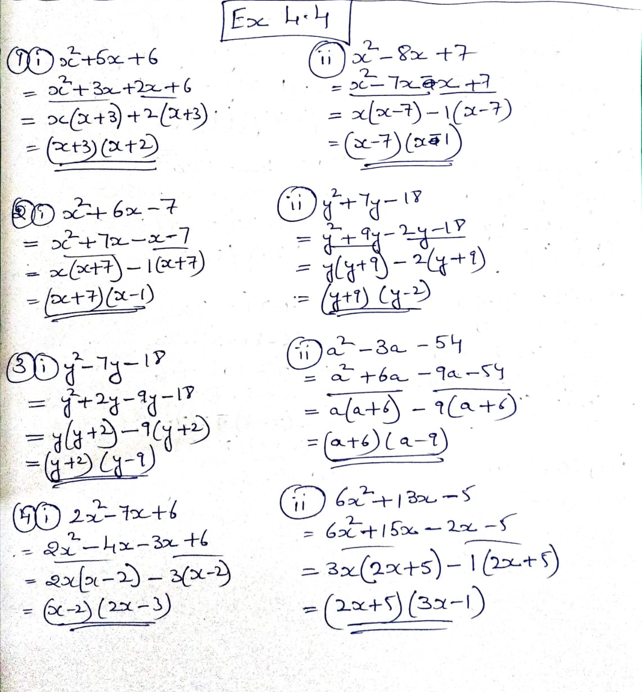 Ex 4.4
1) i x²+5x+6
= x²+3x+2x+6
= x(x+3)+2(x+3)
= (x+3)(x+2)
ii x²-8x+7
= x²-7x-x+7
= x(x-7)-1(x-7)
= (x-7)(x-1)
2) i x²+6x-7
= x²+7x-x-7
= x(x+7)-1(x+7)
= (x+7)(x-1)
ii y²+7y-18
= y²+9y-2y-18
= y(y+9)-2(y+9)
= (y+9)(y-2)
3) i y²-7y-18
= y²+2y-9y-18
= y(y+2)-9(y+2)
= (y+2)(y-9)
ii a²-3a-54
= a²+6a-9a-54
= a(a+6)-9(a+6)
= (a+6)(a-9)
4) i 2x²-7x+6
= 2x²-4x-3x+6
= 2x(x-2)-3(x-2)
= (x-2)(2x-3)
ii 6x²+13x-5
= 6x²+15x-2x-5
= 3x(2x+5)-1(2x+5)
= (2x+5)(3x-1)